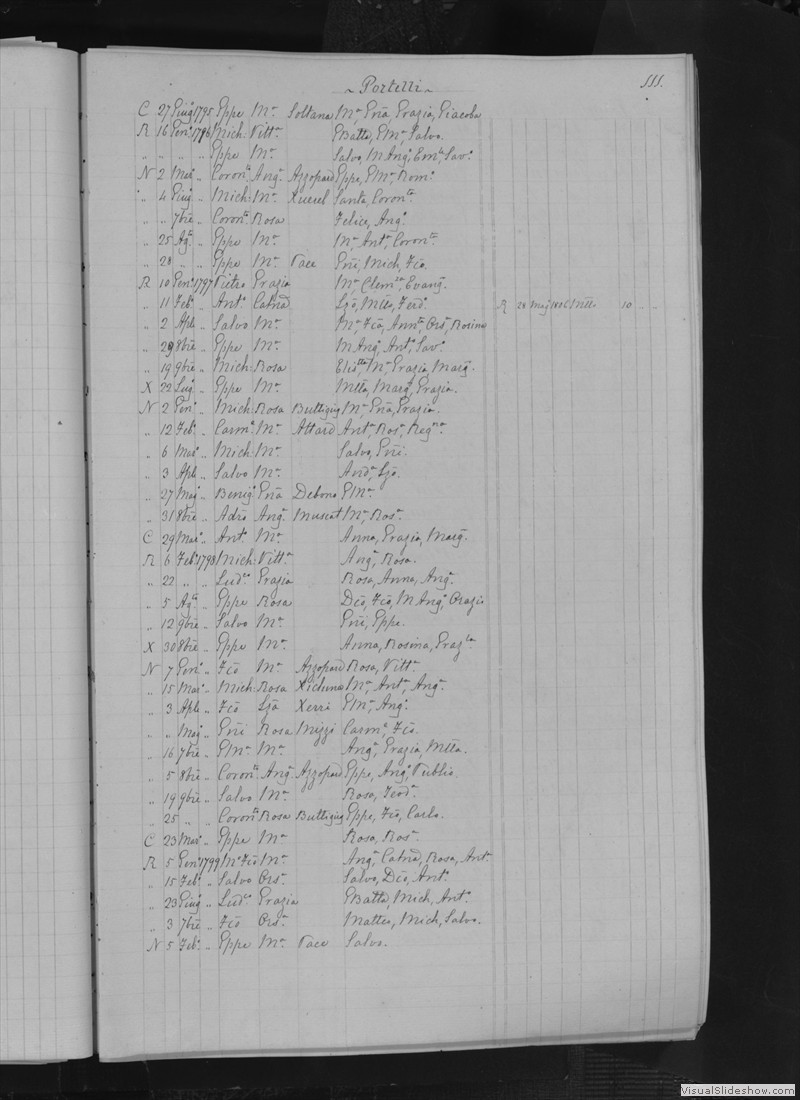 ~ Portelli ~
111.
C 27 Giug. 1795 Gppe Mª Soltana Mª, Gnã, Grazia, Giacoba
R 16 Gen. 1796 Mich: Vittª GBatta, GMª, Salvo.
" " " " Gppe Mª Salvo, M Angº, Emlª, Savº
N 2 Mar. " Coronto Angª Azzopard Gppe, GMª, Romº
" 4 Giug. " Mich: Mª Xuereb Santa, Corontª
" " 7bre " Coronto Rosa Felice, Angº
" 25 Agto " Gppe Mª Mª, Antª, Corontª
" 28 " " Gppe Mª Pace Gnñi, Mich, Fcõ.
R 10 Gen. 1797 Pietro Grazia Mª, Clemza, Evang.
" 11 Feb. " Antº Catnã Lzõ, Mtta, Fedº R 28 Mag. 1806 Mtta 10
" 2 Aple " Salvo Mª Mª, Fcã, Anntª, Orsª, Rosina
" 29 8bre " Gppe Mª M Angº, Antº, Savº
" 19 9bre " Mich: Rosa Elistta, Mª, Grazia, Marg.
X 22 Lug. " Gppe Mª Mtta, Marg., Grazia.
N 2 Gen. " Mich: Rosa Buttigieg Mª, Gnã, Grazia.
" 12 Feb. " Carmº Mª Attard Antª, Rosª, Regna
" 6 Mar. " Mich: Mª Salvo, Gnñi.
" 3 Aple " Salvo Mª Andª, Lzõ.
" 27 Mag. " Benigº Gnã Debono GMª
" 31 8bre " Adrõ Angª Muscat Mª, Rosª
C 29 Mar. " Antº Mª Anna, Grazia, Marg.
R 6 Feb. 1798 Mich: Vittª Angª, Rosa.
" 22 " " Ludco Grazia Rosa, Anna, Angª
" 5 Agto " Gppe Rosa Dcõ, Fcõ, M Angº, Orazio
" 12 9bre " Salvo Mª Gnñi, Gppe.
X 30 8bre " Gppe Mª Anna, Rosina, Grazla
N 7 Gen. " Fcõ Mª Azzopard Rosa, Vittª
" 15 Mar. " Mich: Rosa Xicluna Mª, Antª, Angª
" 3 Aple " Fcõ Lzã Xerri GMª, Angº
" " Mag. " Gnñi Rosa Mizzi Carmº, Fcõ.
" 16 7bre " GMª Mª Angª, Grazia, Mtta.
" 5 8bre " Coronto Angª Azzopard Gppe, Angº, Publio.
" 19 9bre " Salvo Mª Rosa, Teodª
" 25 " " Coronto Rosa Buttigieg Gppe, Fcõ, Carlo.
C 23 Mar. " Gppe Mª Rosa, Rosª
R 5 Gen. 1799 Mº Fcõ Mª Angª, Catnã, Rosa, Antª
" 15 Feb. " Salvo Orsª Salvo, Dcõ, Antº
" 23 Giug. " Ludco Grazia GBatta, Mich, Antº
" 3 7bre " Fcõ Orsª Matteo, Mich, Salvo.
N 5 Feb. " Gppe Mª Pace Salvo.
VisualSlideshow.com